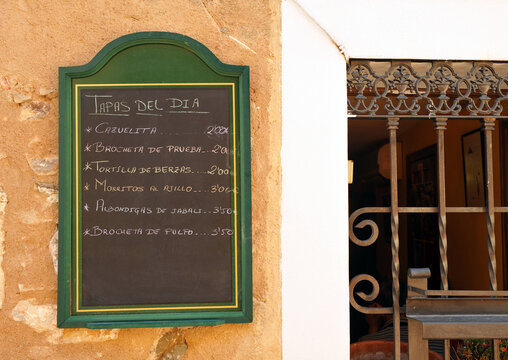 TAPAS DEL DIA
* CAZUELITA ......... 2'00€
* BROCHETA DE PRUEBA.. 2'00
* TORTILLA DE BERZAS.... 2'00€
* MORRITOS AL AJILLO .... 3'00€
* ALBONDIGAS DE JABALI.. 3'50€
* BROCHETA DE PULPO.... 3'50